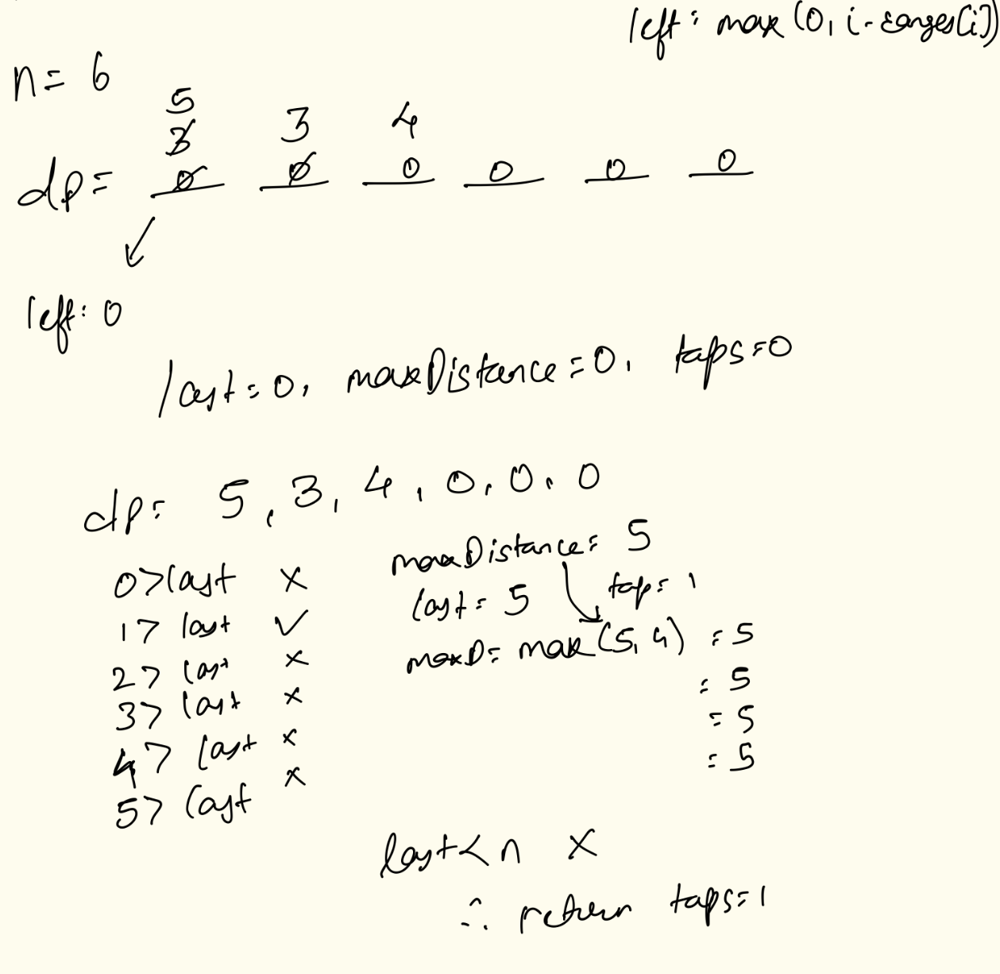 left: max (0, i-ranges[i])
n= 6
5
3 3 4
dp= 0 0 0 0 0 0
left: 0
last=0, maxDistance=0, taps=0
dp= 5, 3, 4, 0, 0, 0
maxDistance= 5
0>last x
last= 5 tap= 1
1> last ✓
maxD= max(5, 4) = 5
2> last x
= 5
3> last x
= 5
4> last x
= 5
5> last x
last<n x
∴ return taps=1